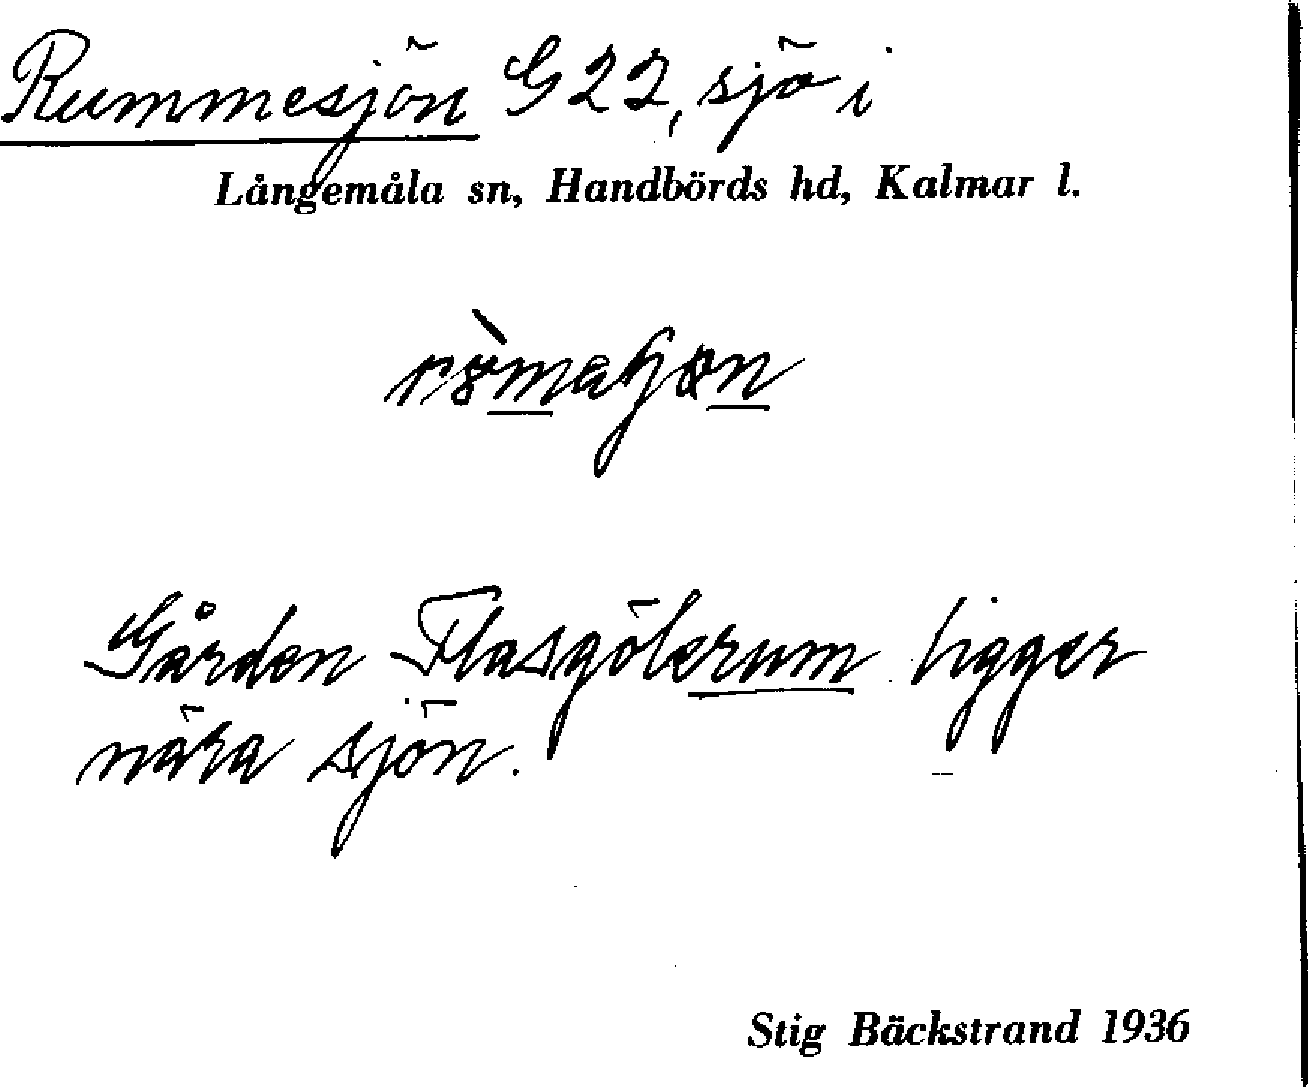 Rummesjön G22, sjö i
Långemåla sn, Handbörds hd, Kalmar l.
Gården Flasgölerum ligger
nära sjön.
Stig Bäckstrand 1936